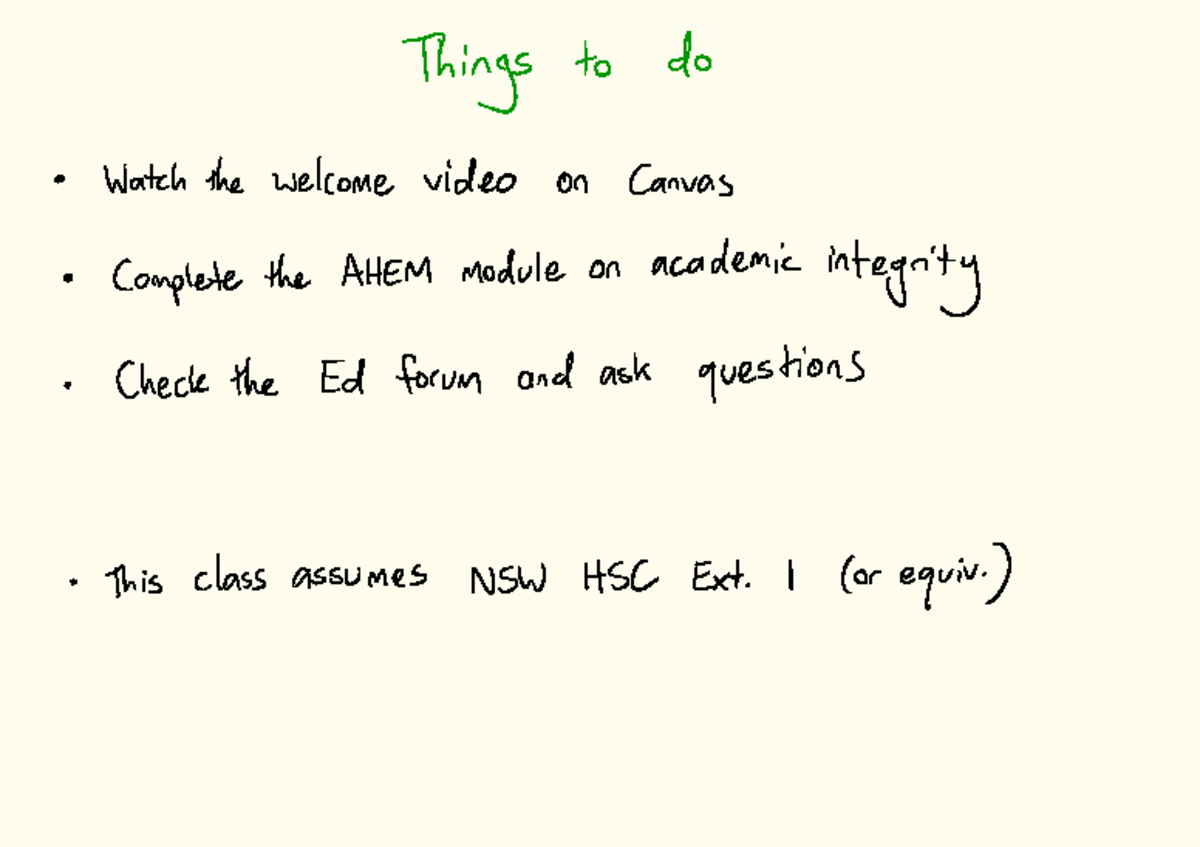 Things to do
• Watch the welcome video on Canvas
• Complete the AHEM module on academic integrity
• Check the Ed forum and ask questions
• This class assumes NSW HSC Ext. 1 (or equiv.)